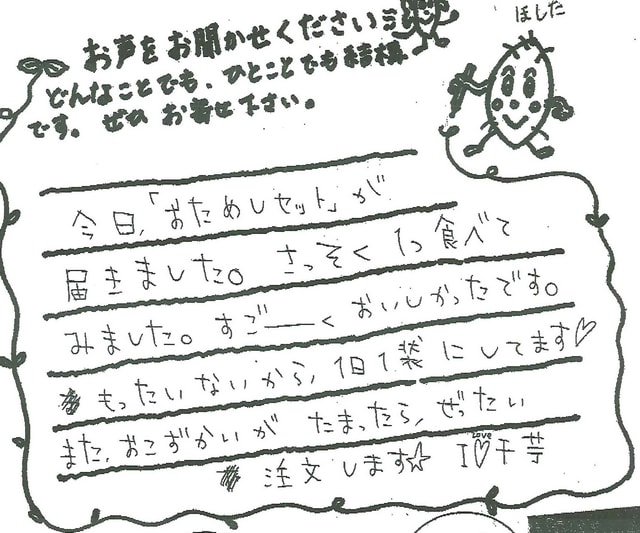 ほした
お声をお聞かせください
どんなことでも、ひとことでも結構
です。ぜひ お寄せ下さい。
今日、「おためしセット」が
届きました。さっそく 1つ食べて
みました。すご――く おいしかったです。
もったいないから、1日1袋にしてます♡
また、おこずかいが たまったら、ぜったい
注文します☆ I♡干芋
Love